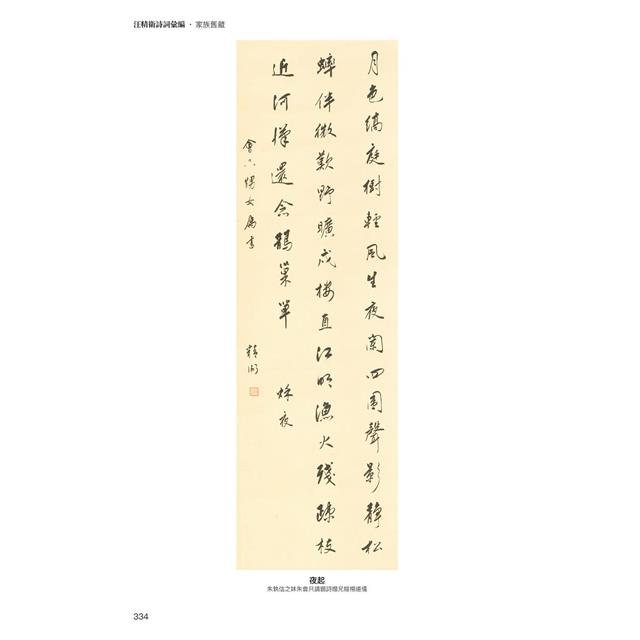 汪精衛詩詞彙編 · 家族舊藏
月色縞庭樹輕風生夜闌四圍聲影靜松
蟀伴微歎野曠戍樓直江明漁火殘疎枝
近河漢還念鵲巢單 秋夜
會只女屬書 精衛
夜起
朱執信之妹朱會只請題詩贈兄嫂楊道儀
334